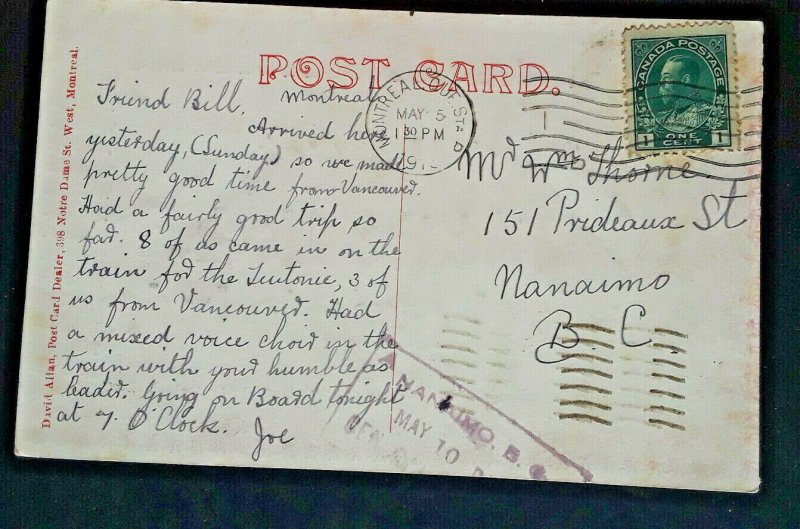 POST CARD.
Friend Bill. Montreal
Arrived here
yesterday, (Sunday) so we made
pretty good time from Vancouver.
Had a fairly good trip so
far. 8 of us came in on the
train for the Teutonic, 3 of
us from Vancouver. Had
a mixed voice choir in the
train with your humble as
leader. Going on Board tonight
at 7. O'Clock. Joe
David Allan, Post Card Dealer, 398 Notre Dame St. West, Montreal.
MONTREAL QUE. STA A
MAY 5
1 30 PM
CANADA POSTAGE
1 ONE CENT 1
Mr Wm Thorne.
151 Prideaux St
Nanaimo
B C.
NANAIMO, B. C.
MAY 10